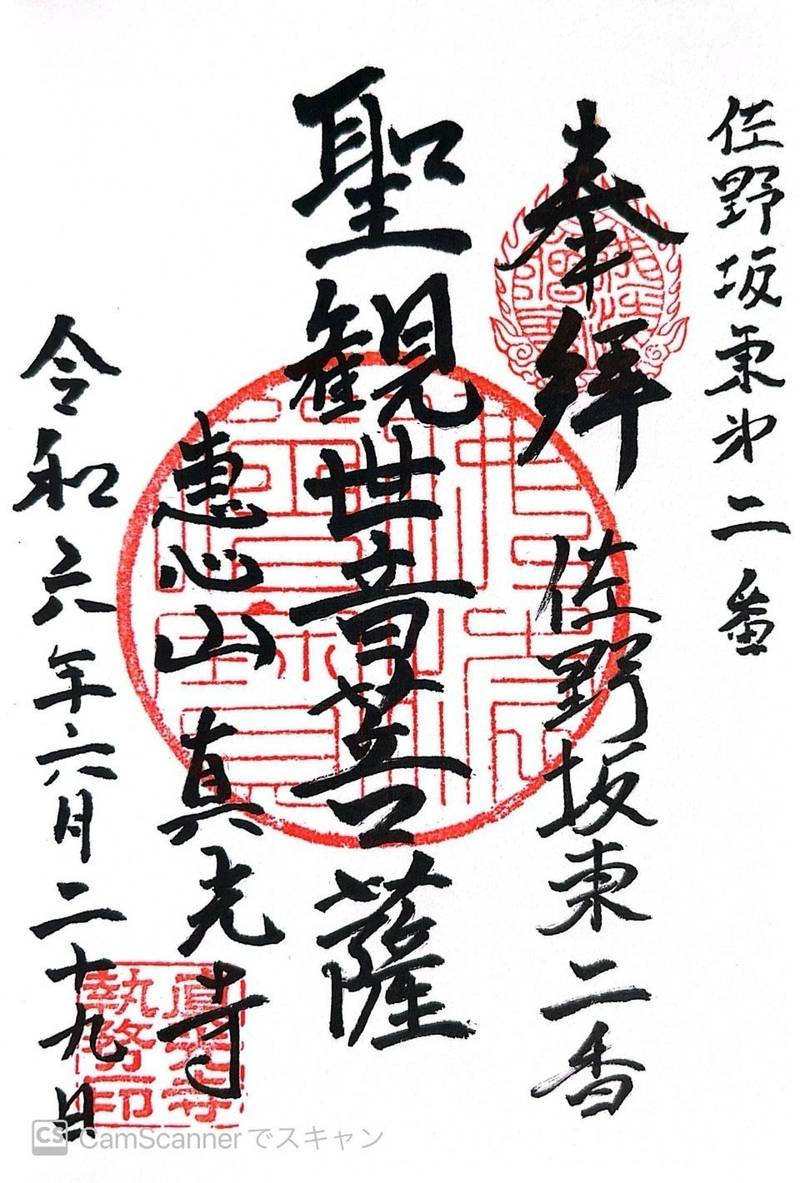 佐野坂東第二番
奉拝
佐野坂東二番
聖観世音菩薩
恵心山 真光寺
令和六年六月二十九日
真光寺
執務印
CamScannerでスキャン